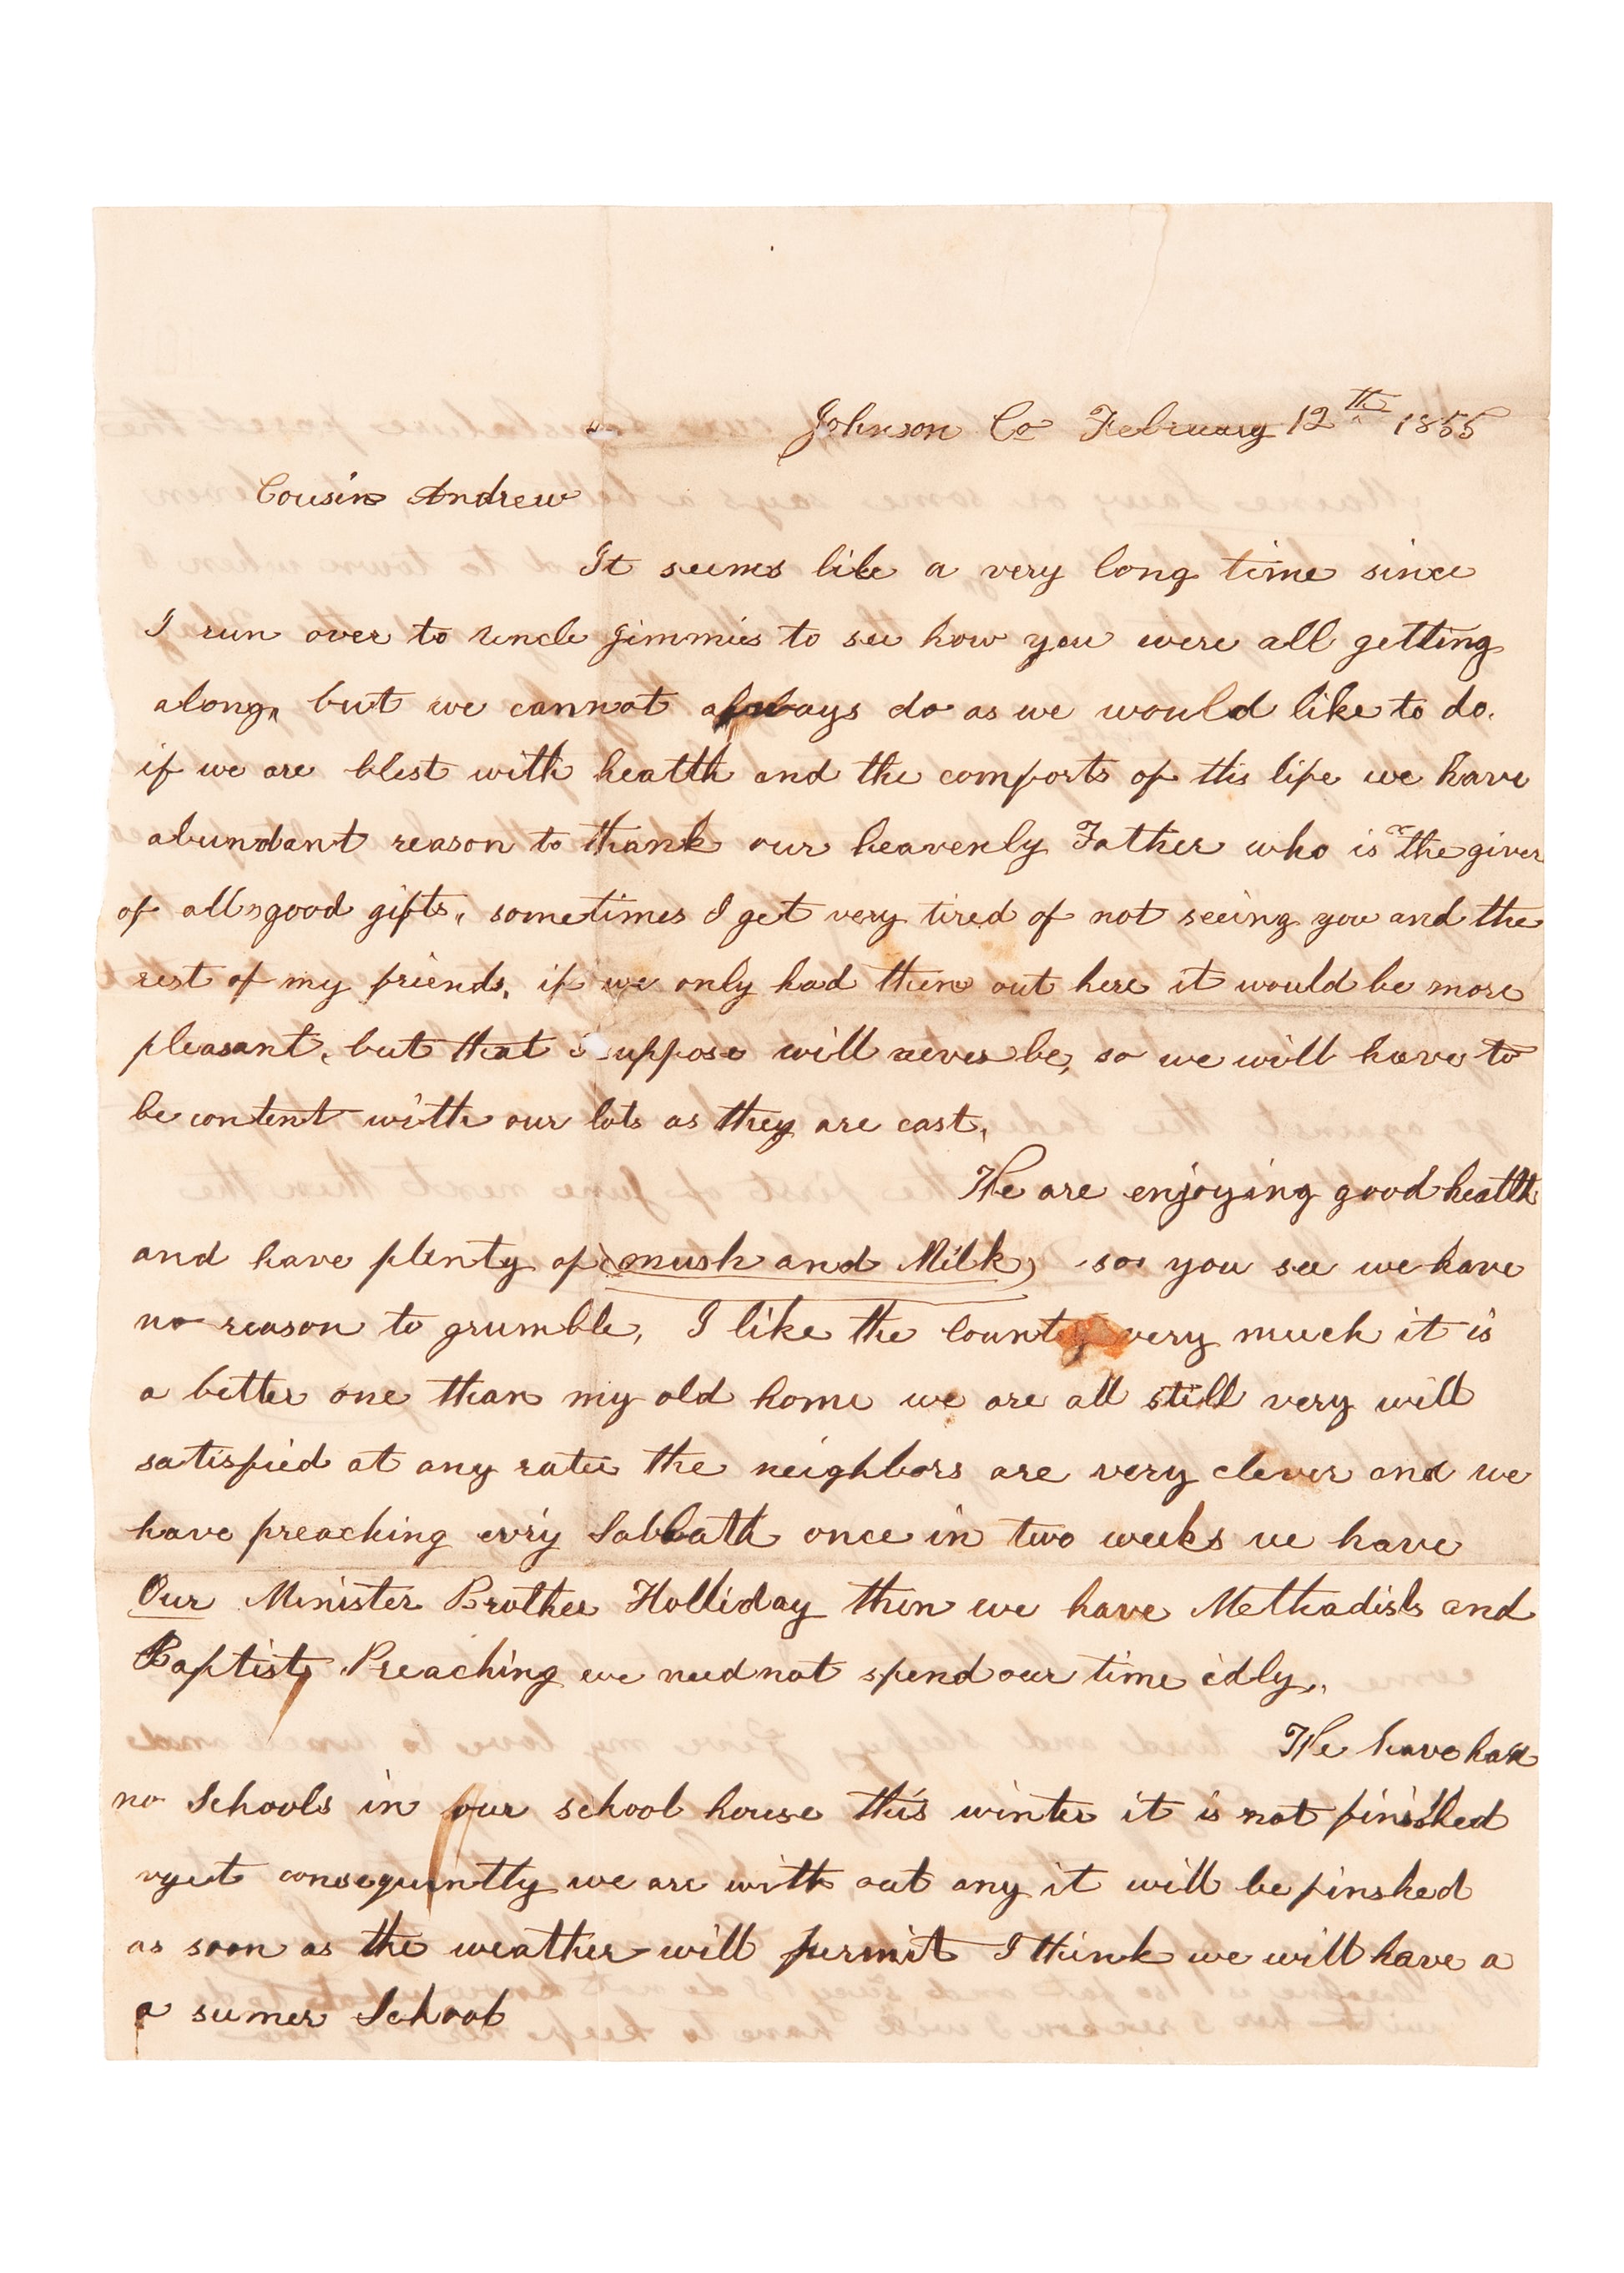 Johnson Co February 12th 1855
Cousin Andrew
It seems like a very long time since
I run over to uncle Jimmies to see how you were all getting
along, but we cannot always do as we would like to do.
if we are blest with health and the comforts of this life we have
abundant reason to thank our heavenly Father who is the giver
of all good gifts, sometimes I get very tired of not seeing you and the
rest of my friends, if we only had them out here it would be more
pleasant, but that I suppose will never be, so we will have to
be content with our lots as they are cast,
We are enjoying good health
and have plenty of (mush and Milk) so you see we have
no reason to grumble, I like the County very much it is
a better one than my old home we are all still very will
satisfied at any rate the neighbors are very clever and we
have preaching evry Sabbath once in two weeks we have
Our Minister Brother Holliday then we have Methadists and
Baptist, Preaching we need not spend our time idly,
We have had
no Schools in our school house this winter it is not finished
yet consequently we are with out any it will be finshed
as soon as the weather will permit I think we will have a
a sumer School